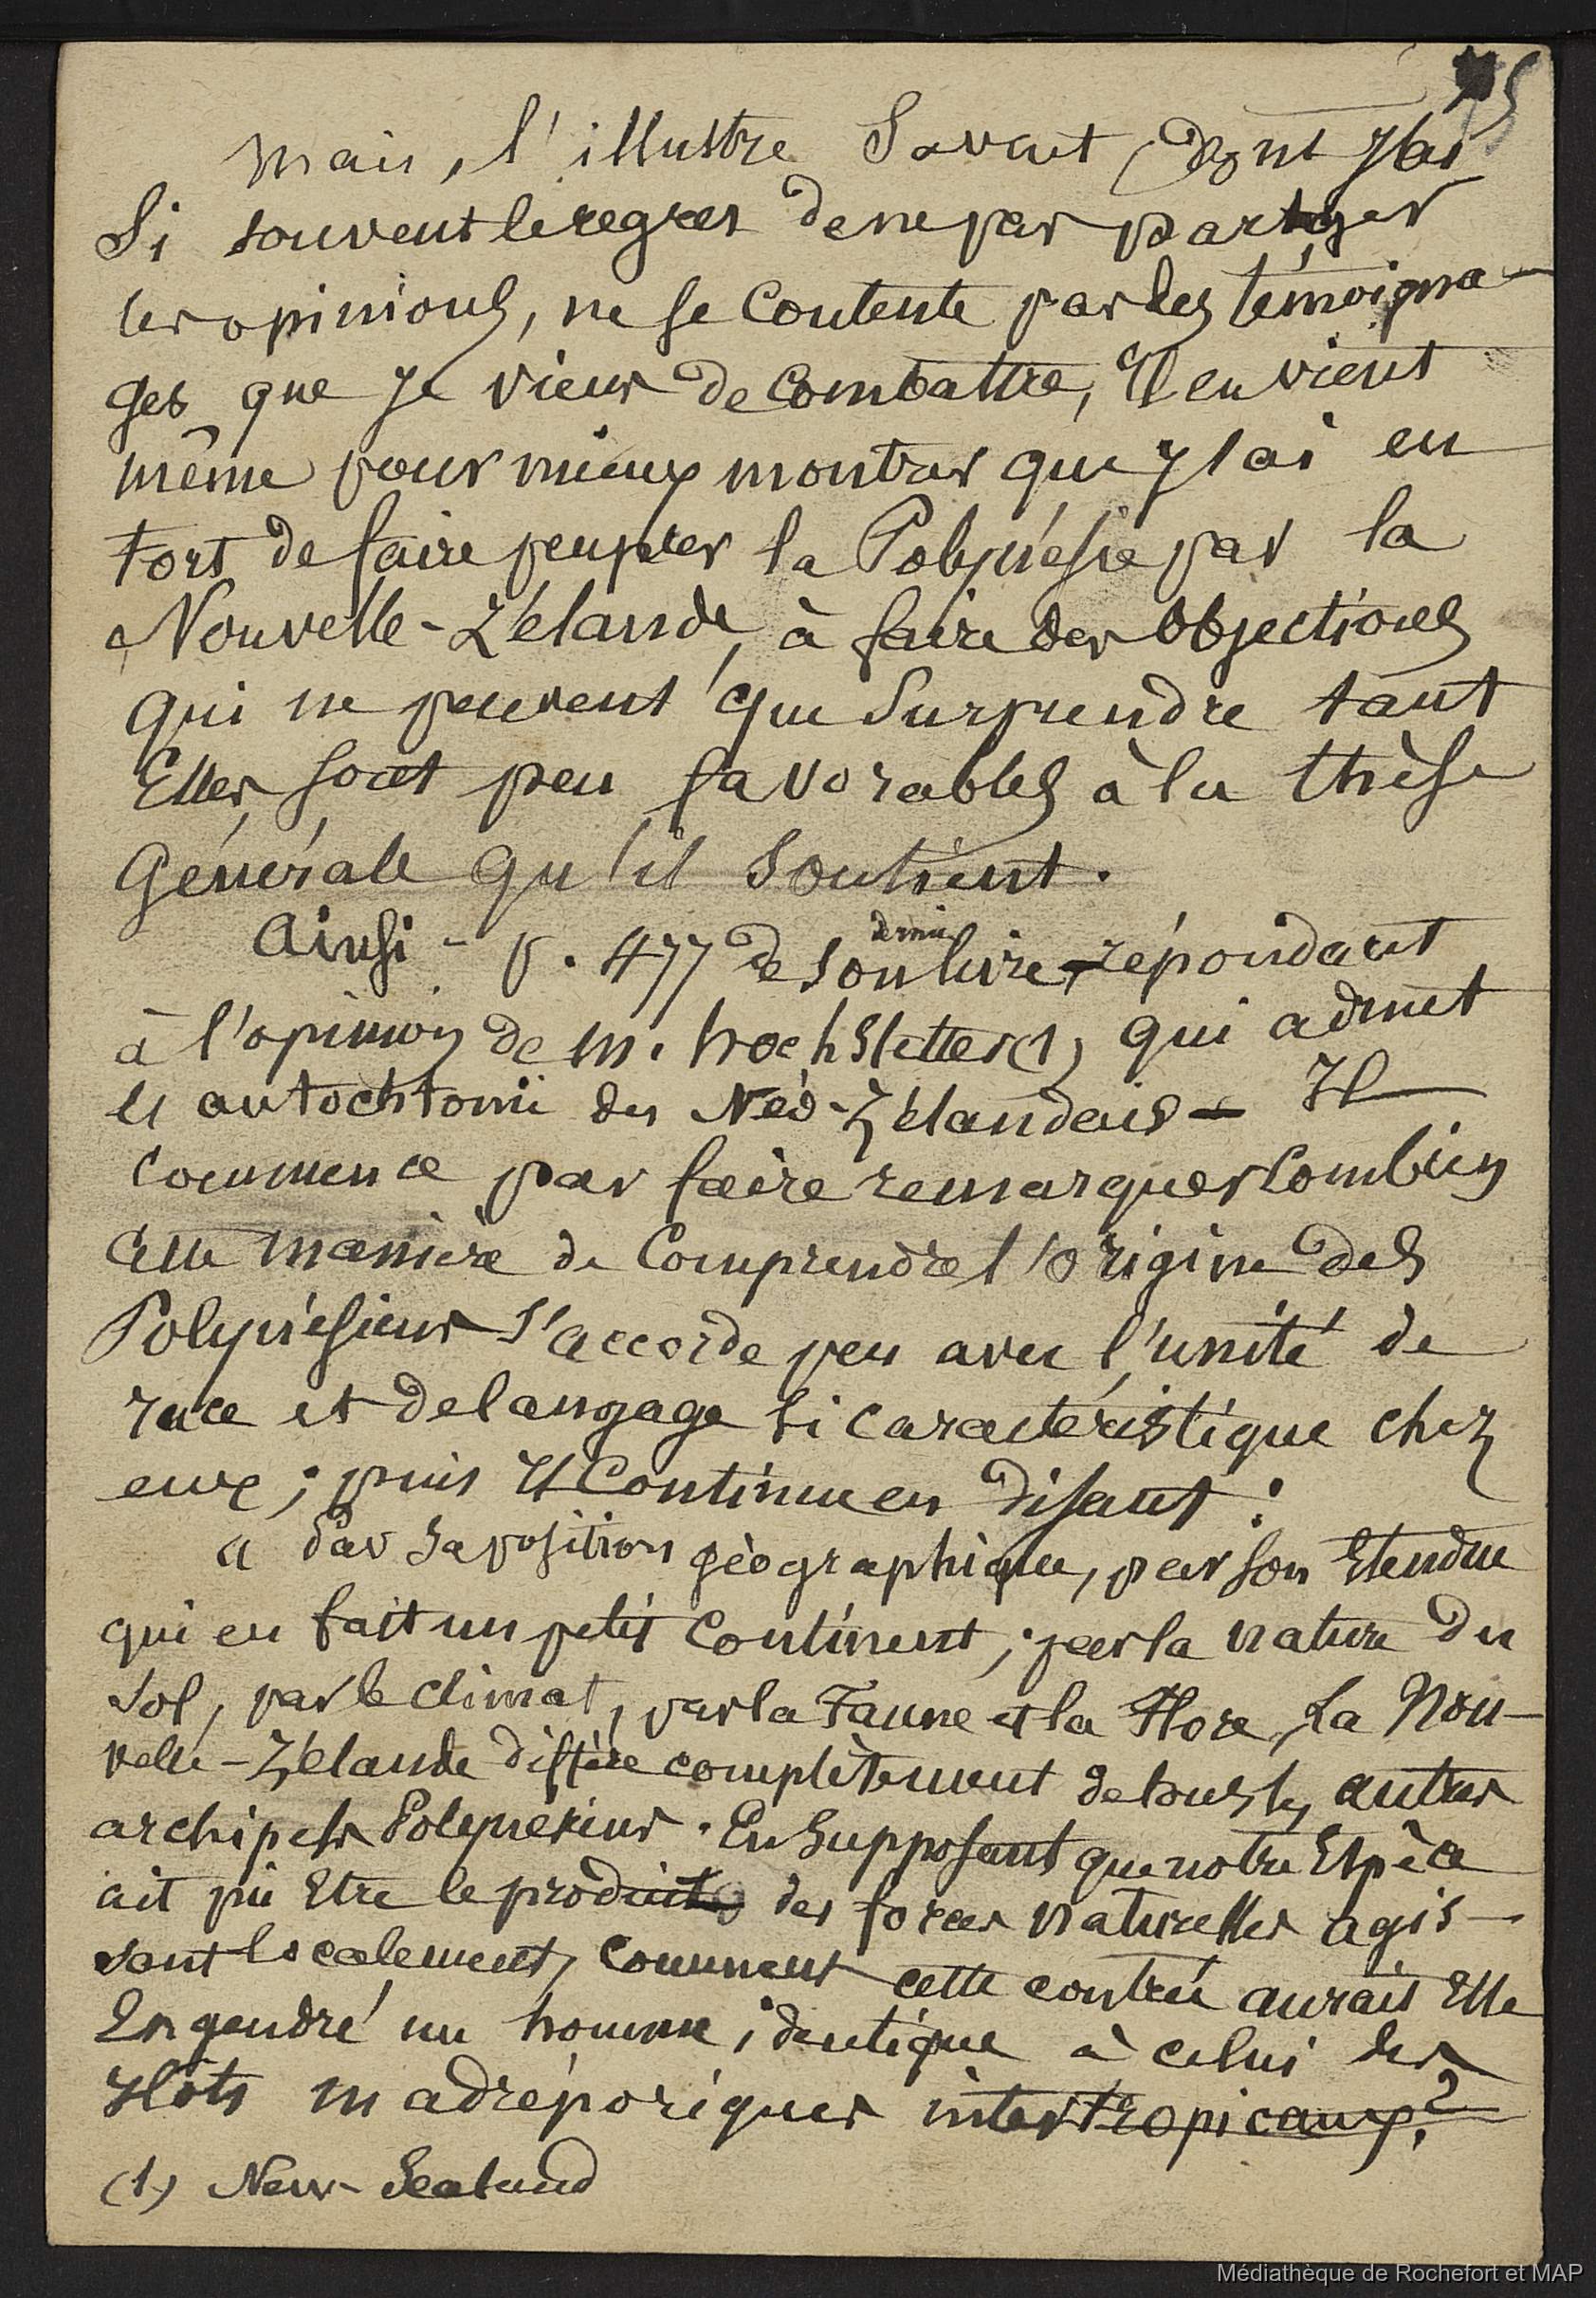 75
Mais, l'illustre Savant, dont J'ai
Si souvent le regret de ne pas partager
les opinions, ne se Contente pas des témoigna-
ges que Je viens de Combattre, Il en vient
même pour mieux montrer que J'ai eu
tort de faire peupler la Polynésie par la
Nouvelle-Zélande, à faire des Objections
qui ne peuvent que Surprendre tant
Elles sont peu favorables à la thèse
Générale qu'il Soutient.
Ainsi - p. 477 de Son dernier livre, répondant
à l'opinion de M. Hochstetter (1), qui admet
l'autochtonie des Néo-Zélandais - Il
Commence par faire remarquer Combien
Cette manière de Comprendre l'Origine des
Polynésiens S'accorde peu avec l'unité de
race et de langage Si caractéristique chez
eux ; puis Il Continue en disant :
« Par Sa position géographique, par son Etendue
qui en fait un petit Continent ; par la nature du
sol, par le climat, par la Faune et la Flore, La Nou-
velle-Zélande diffère complètement de tous les autres
archipels Polynésiens. En Supposant que notre Espèce
ait pu Etre le produit des forces naturelles agis-
sant localement, Comment cette contrée aurait Elle
Engendré un homme identique à celui des
Ilots madréporiques intertropicaux ?
(1) New-Sealand
Médiathèque de Rochefort et MAP